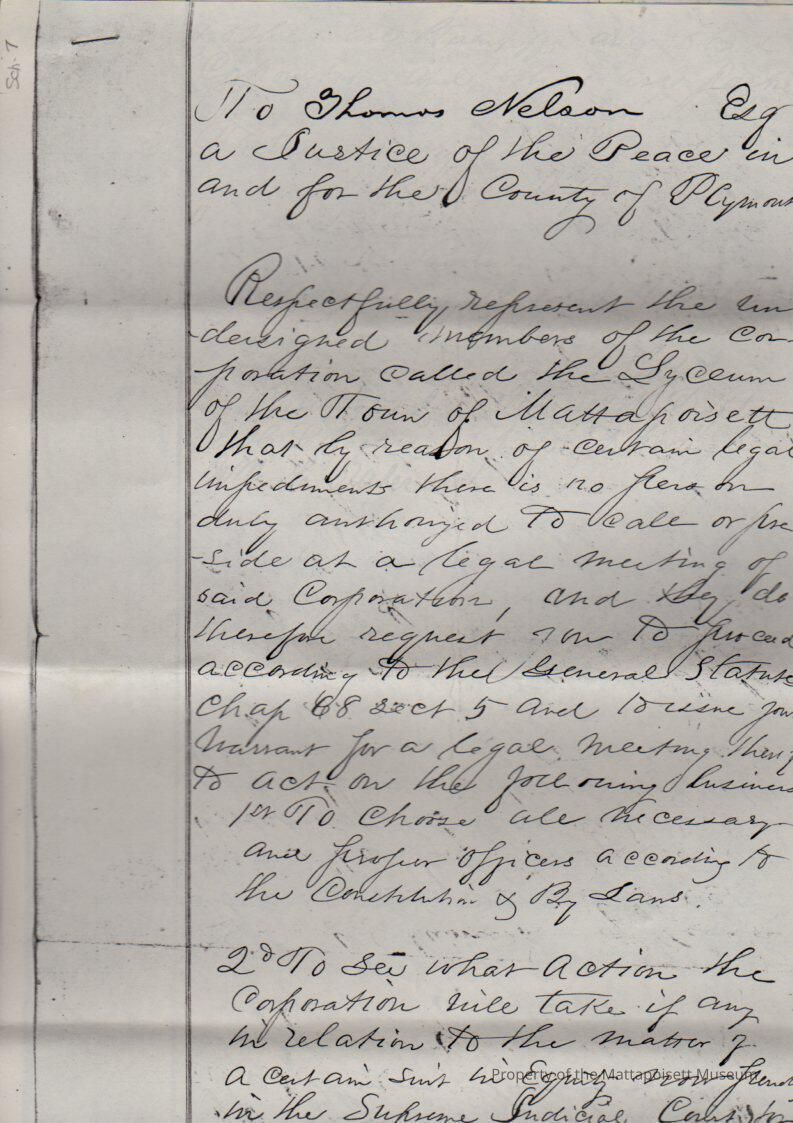 Sch-7
To Thomas Nelson Esq
a Justice of the Peace in
and for the County of Plymout
Respectfully represent the un
-dersigned members of the cor-
poration called the Lyceum
of the Town of Mattapoisett
that by reason of certain legal
impediments there is no person
duly authorized to call or pre
-side at a legal meeting of
said Corporation, and they do
therefore request you to proceed
according to the General Statutes
Chap 68 sect 5 and to issue your
warrant for a legal meeting
to act on the following business
1st To choose all necessary
and proper officers according to
the Constitution & By Laws.
2d To see what action the
Corporation will take if any
in relation to the matter of
a certain suit in Equity now
in the Supreme Judicial Court
Property of the Mattapoisett Museum